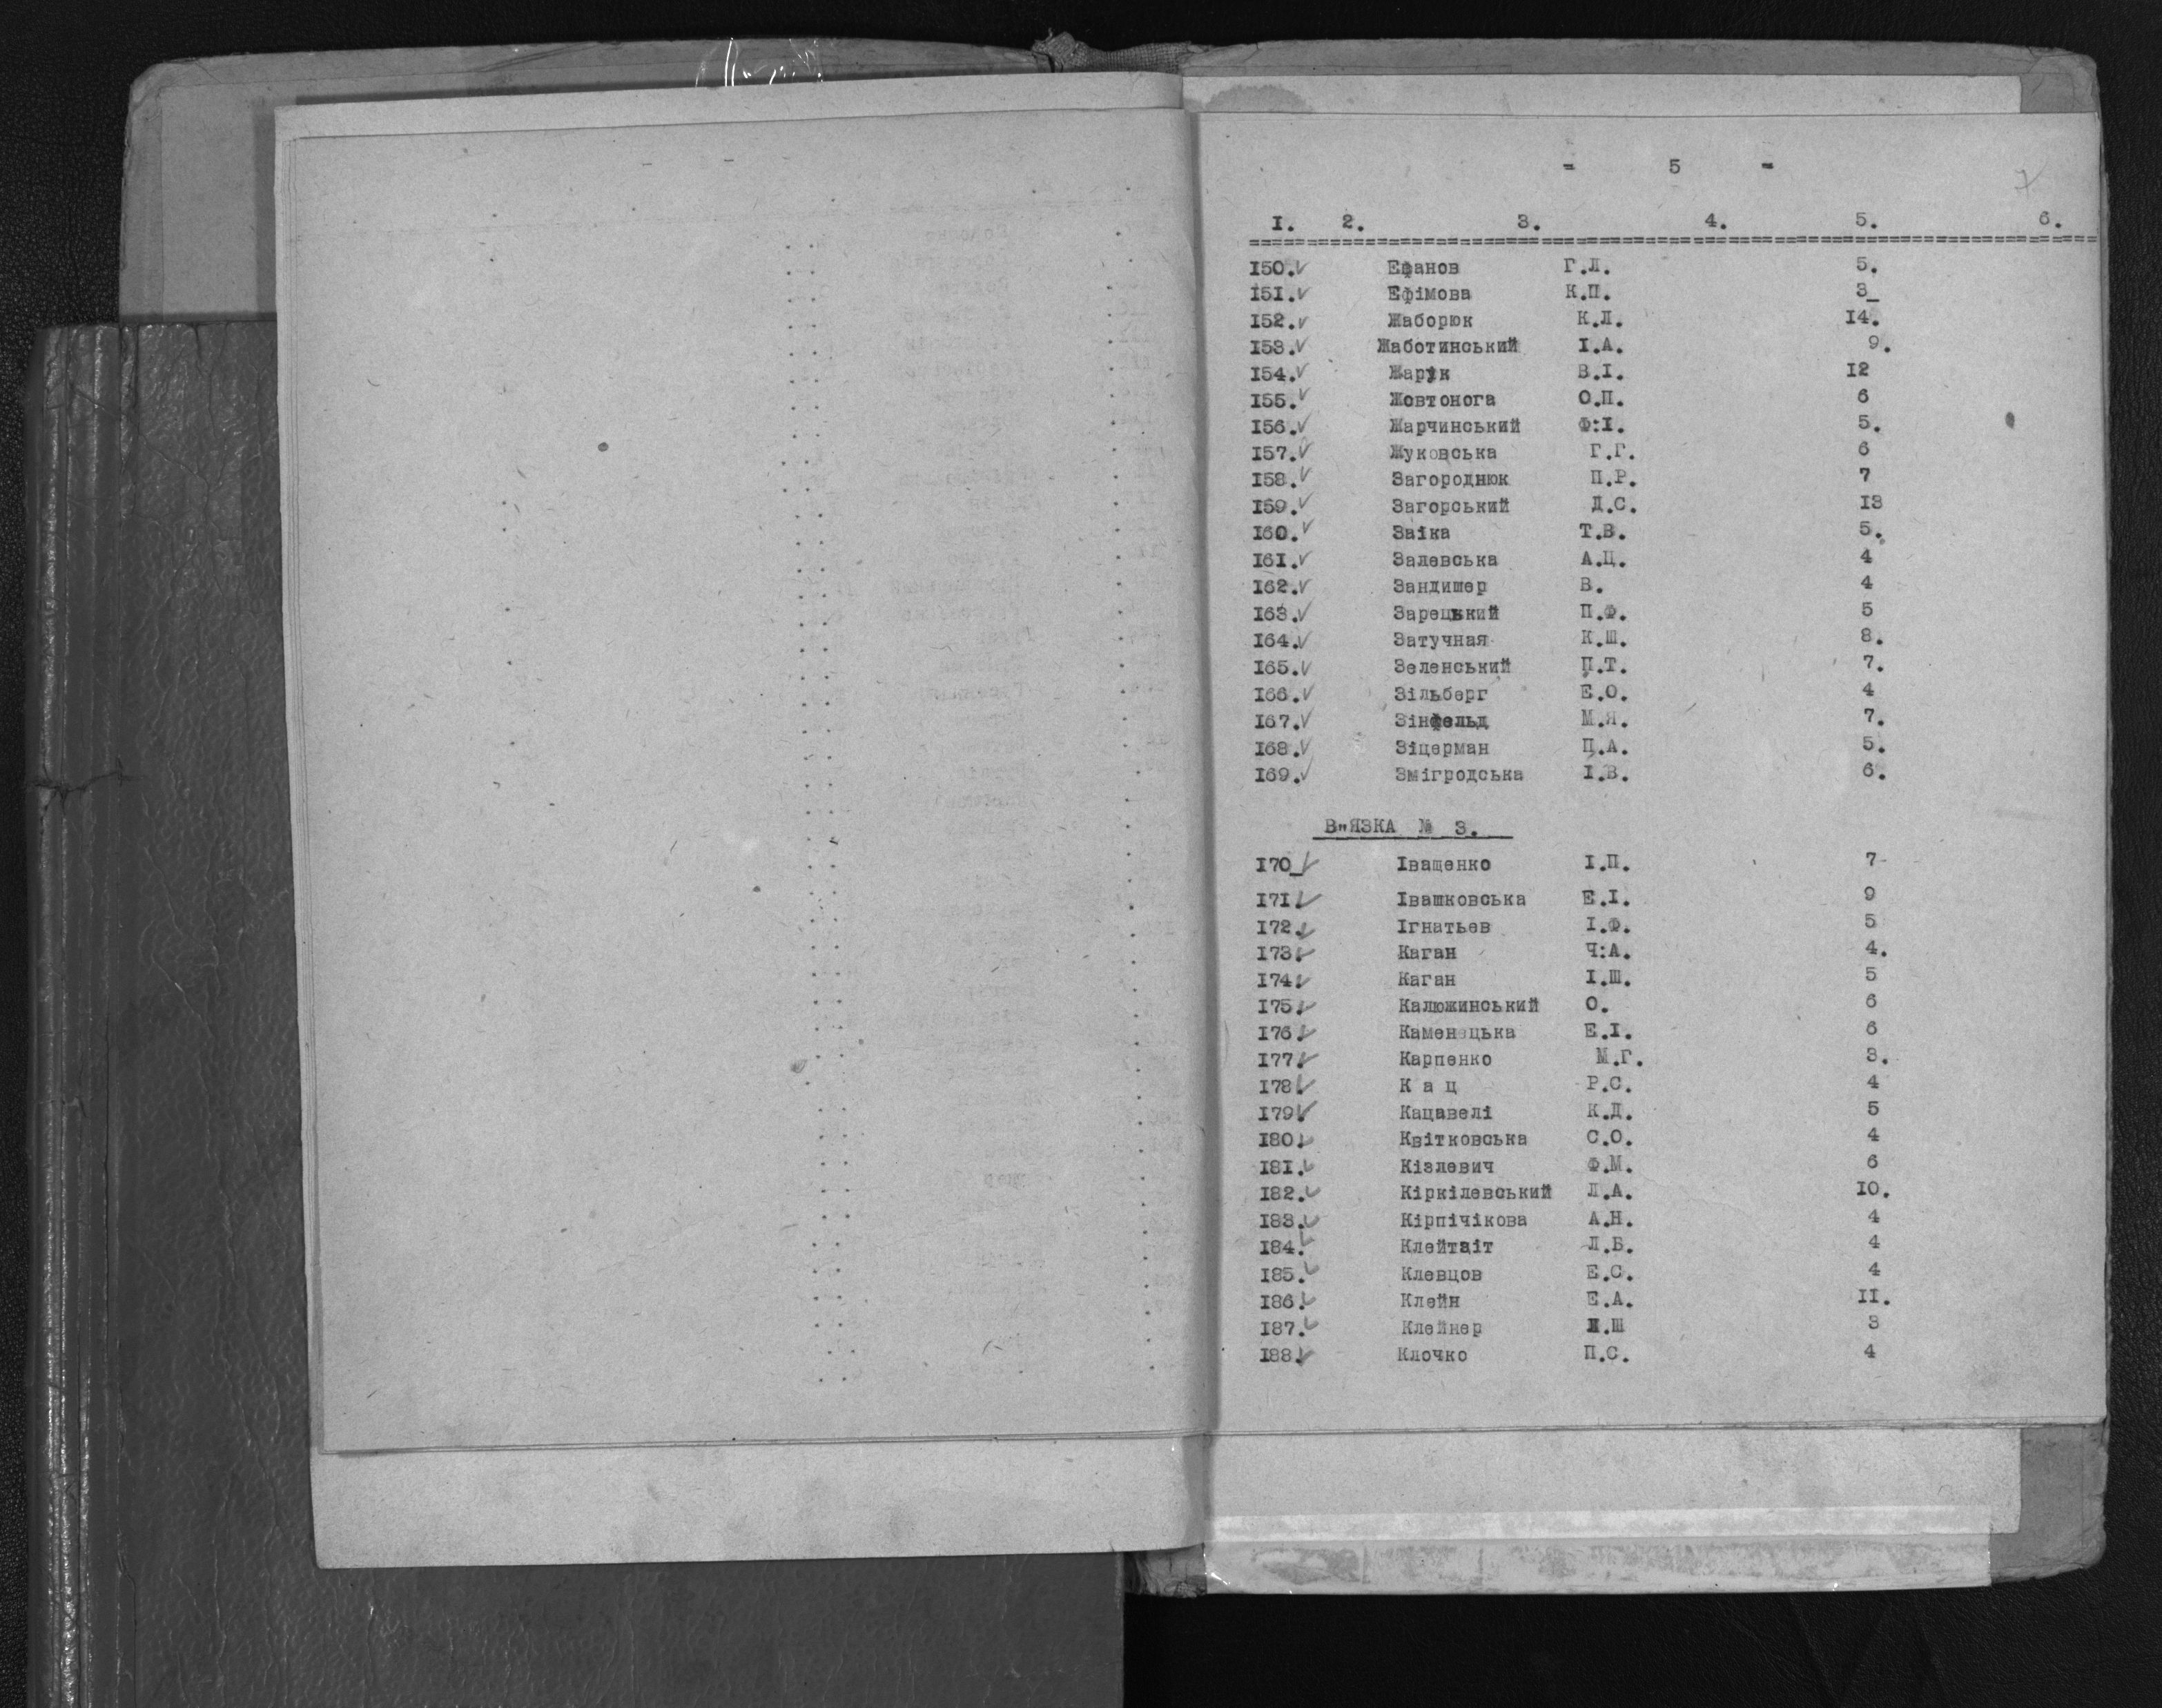 - 5 -
7
I. 2. 3. 4. 5. 6.
I50. ✓ Ефанов Г.Л. 5.
I5I. ✓ Ефімова К.П. 3_
I52. ✓ Жаборюк К.Л. I4.
I53. ✓ Жаботинський І.А. 9.
I54. ✓ Жарук В.І. I2
I55. ✓ Жовтонога О.П. 6
I56. ✓ Жарчинський Ф:І. 5.
I57. ✓ Жуковська Г.Г. 6
I58. ✓ Загороднюк П.Р. 7
I59. ✓ Загорський Д.С. I3
I60. ✓ Заіка Т.В. 5.
I6I. ✓ Залевська А.Ц. 4
I62. ✓ Зандишер В. 4
I63. ✓ Зарецький П.Ф. 5
I64. ✓ Затучная К.Ш. 8.
I65. ✓ Зеленський П.Т. 7.
I66. ✓ Зільберг Е.О. 4
I67. ✓ Зінфельд М.Я. 7.
I68. ✓ Зіцерман П.А. 5.
I69. ✓ Змігродська І.В. 6.
В"ЯЗКА № 3.
I70_ ✓ Іващенко І.П. 7
I7I. ✓ Івашковська Е.І. 9
I72. ✓ Ігнатьев І.Ф. 5
I73. ✓ Каган Ч:А. 4.
I74. ✓ Каган І.Ш. 5
I75. ✓ Калюжинський О. 6
I76. ✓ Каменецька Е.І. 6
I77. ✓ Карпенко М.Г. 3.
I78. ✓ К а ц Р.С. 4
I79. ✓ Кацавелі К.Д. 5
I80. ✓ Квітковська С.О. 4
I8I. ✓ Кізлевич Ф.М. 6
I82. ✓ Кіркілевський Л.А. I0.
I83. ✓ Кірпічікова А.Н. 4
I84. ✓ Л.Б. 4
I85. ✓ Клевцов Е.С. 4
I86. ✓ Клейн Е.А. II.
I87. ✓ Клейнер .Ш 3
I88. ✓ Клочко П.С. 4